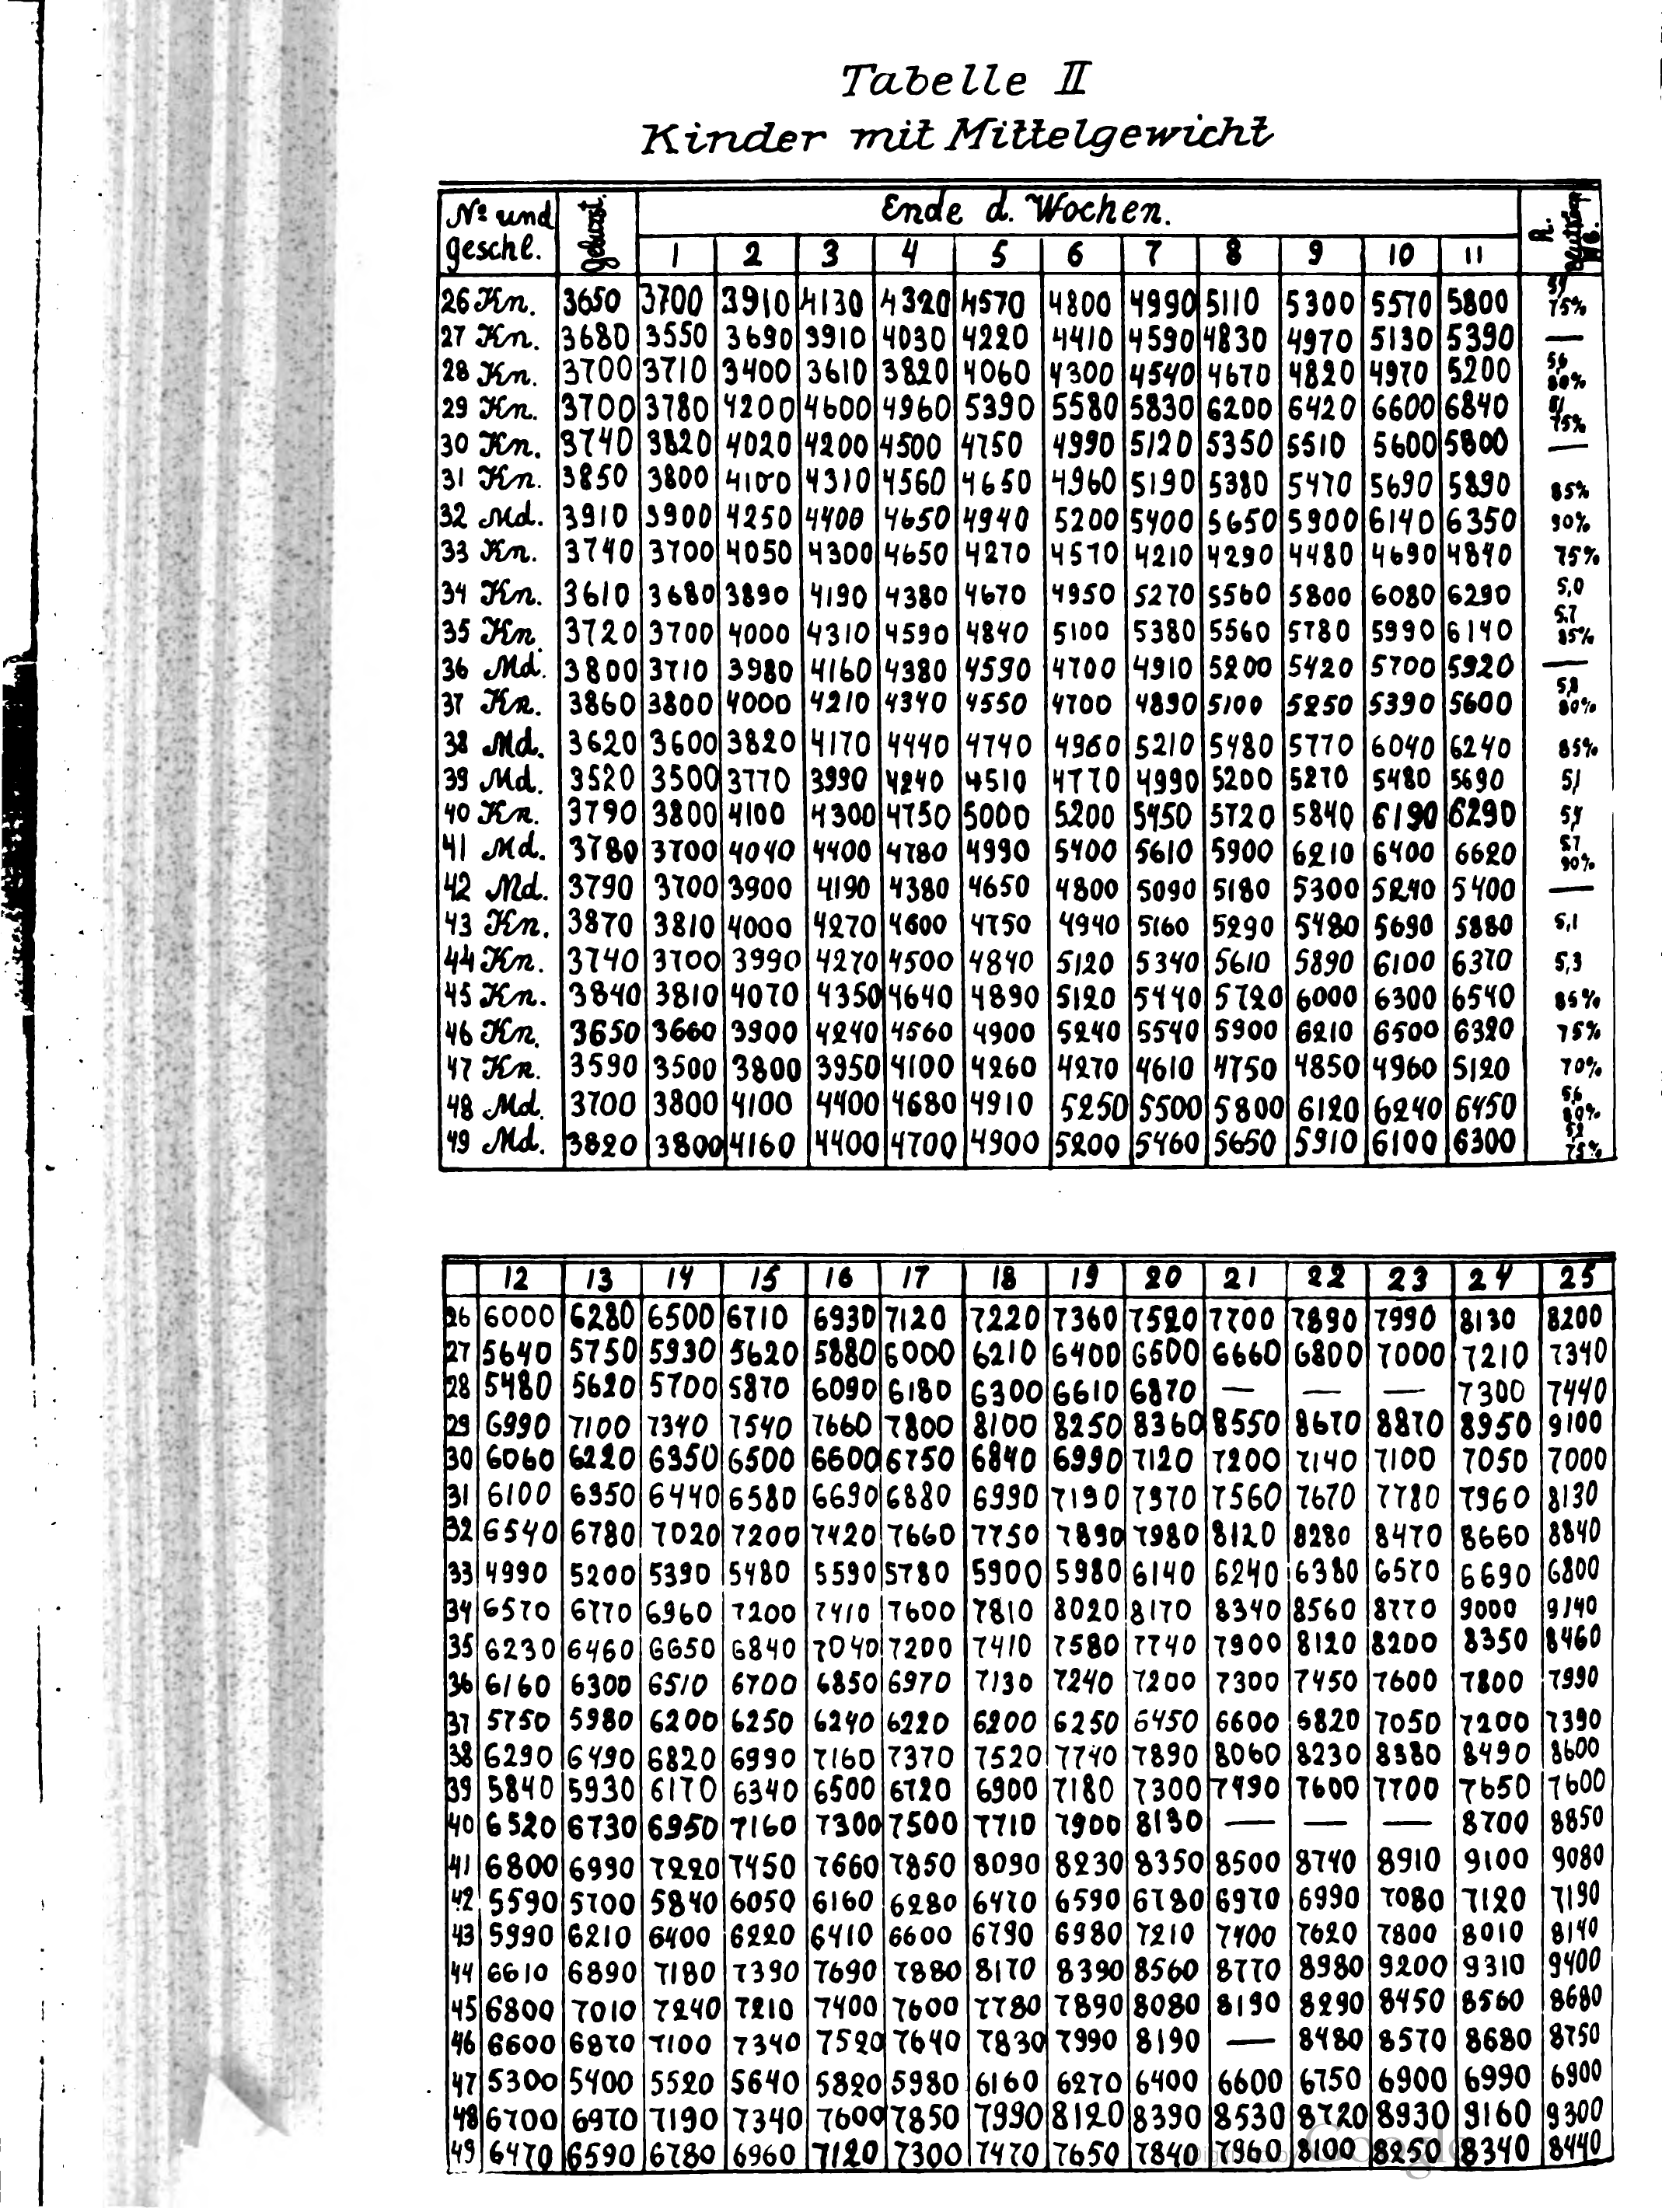 Tabelle II
Kinder mit Mittelgewicht
Nº und geschl. Geburt. Ende d. Wochen. R.
1 2 3 4 5 6 7 8 9 10 11
26 Kn. 3650 3700 3910 4130 4320 4570 4800 4990 5110 5300 5570 5800 75%
27 Kn. 3680 3550 3690 3910 4030 4220 4410 4590 4830 4970 5130 5390 —
28 Kn. 3700 3710 3400 3610 3820 4060 4300 4540 4670 4820 4970 5200 5,6 80%
29 Kn. 3700 3780 4200 4600 4960 5390 5580 5830 6200 6420 6600 6840 75%
30 Kn. 3740 3820 4020 4200 4500 4750 4990 5120 5350 5510 5600 5800 —
31 Kn. 3850 3800 4100 4310 4560 4650 4960 5190 5380 5470 5690 5890 85%
32 Md. 3910 3900 4250 4400 4650 4940 5200 5400 5650 5900 6140 6350 90%
33 Kn. 3740 3700 4050 4300 4650 4270 4570 4210 4290 4480 4690 4840 75%
34 Kn. 3610 3680 3890 4190 4380 4670 4950 5270 5560 5800 6080 6290 5,0
35 Kn 3720 3700 4000 4310 4590 4840 5100 5380 5560 5780 5990 6140 5.7 85%
36 Md. 3800 3710 3980 4160 4380 4590 4700 4910 5200 5420 5700 5920 —
37 Kn. 3860 3800 4000 4210 4340 4550 4700 4890 5100 5250 5390 5600 5,8 80%
38 Md. 3620 3600 3820 4170 4440 4740 4960 5210 5480 5770 6040 6240 85%
39 Md. 3520 3500 3770 3990 4240 4510 4770 4990 5200 5270 5480 5690 5,1
40 Kn. 3790 3800 4100 4300 4750 5000 5200 5450 5720 5840 6190 6290 5,4
41 Md. 3780 3700 4040 4400 4780 4990 5400 5610 5900 6210 6400 6620 5.7 90%
42 Md. 3790 3700 3900 4190 4380 4650 4800 5090 5180 5300 5240 5400 —
43 Kn. 3870 3810 4000 4270 4600 4750 4940 5160 5290 5480 5690 5880 5,1
44 Kn. 3740 3700 3990 4270 4500 4840 5120 5340 5610 5890 6100 6370 5,3
45 Kn. 3840 3810 4070 4350 4640 4890 5120 5440 5720 6000 6300 6540 85%
46 Kn. 3650 3660 3900 4240 4560 4900 5240 5540 5900 6210 6500 6320 75%
47 Kn. 3590 3500 3800 3950 4100 4260 4270 4610 4750 4850 4960 5120 70%
48 Md. 3700 3800 4100 4400 4680 4910 5250 5500 5800 6120 6240 6450 5,6 80%
49 Md. 3820 3800 4160 4400 4700 4900 5200 5460 5650 5910 6100 6300 5,2 75%
12 13 14 15 16 17 18 19 20 21 22 23 24 25
26 6000 6280 6500 6710 6930 7120 7220 7360 7520 7700 7890 7990 8130 8200
27 5640 5750 5930 5620 5880 6000 6210 6400 6500 6660 6800 7000 7210 7340
28 5480 5620 5700 5870 6090 6180 6300 6610 6870 — — — 7300 7440
29 6990 7100 7340 7540 7660 7800 8100 8250 8360 8550 8670 8870 8950 9100
30 6060 6220 6350 6500 6600 6750 6840 6990 7120 7200 7140 7100 7050 7000
31 6100 6350 6440 6580 6690 6880 6990 7190 7370 7560 7670 7780 7960 8130
32 6540 6780 7020 7200 7420 7660 7750 7890 7980 8120 8280 8470 8660 8840
33 4990 5200 5390 5480 5590 5780 5900 5980 6140 6240 6380 6570 6690 6800
34 6570 6770 6960 7200 7410 7600 7810 8020 8170 8340 8560 8770 9000 9140
35 6230 6460 6650 6840 7040 7200 7410 7580 7740 7900 8120 8200 8350 8460
36 6160 6300 6510 6700 6850 6970 7130 7240 7200 7300 7450 7600 7800 7990
37 5750 5980 6200 6250 6240 6220 6200 6250 6450 6600 6820 7050 7200 7390
38 6290 6490 6820 6990 7160 7370 7520 7740 7890 8060 8230 8380 8490 8600
39 5840 5930 6170 6340 6500 6720 6900 7180 7300 7490 7600 7700 7650 7600
40 6520 6730 6950 7160 7300 7500 7710 7900 8130 — — — 8700 8850
41 6800 6990 7220 7450 7660 7850 8090 8230 8350 8500 8740 8910 9100 9080
42 5590 5700 5840 6050 6160 6280 6470 6590 6780 6970 6990 7080 7120 7190
43 5990 6210 6400 6220 6410 6600 6790 6980 7210 7400 7620 7800 8010 8140
44 6610 6890 7180 7390 7690 7880 8170 8390 8560 8770 8980 9200 9310 9400
45 6800 7010 7240 7210 7400 7600 7780 7890 8080 8190 8290 8450 8560 8680
46 6600 6870 7100 7340 7520 7640 7830 7990 8190 — 8480 8570 8680 8750
47 5300 5400 5520 5640 5820 5980 6160 6270 6400 6600 6750 6900 6990 6900
48 6700 6970 7190 7340 7600 7850 7990 8120 8390 8530 8720 8930 9160 9300
49 6470 6590 6780 6960 7120 7300 7470 7650 7840 7960 8100 8250 8340 8440
Digitized by Google